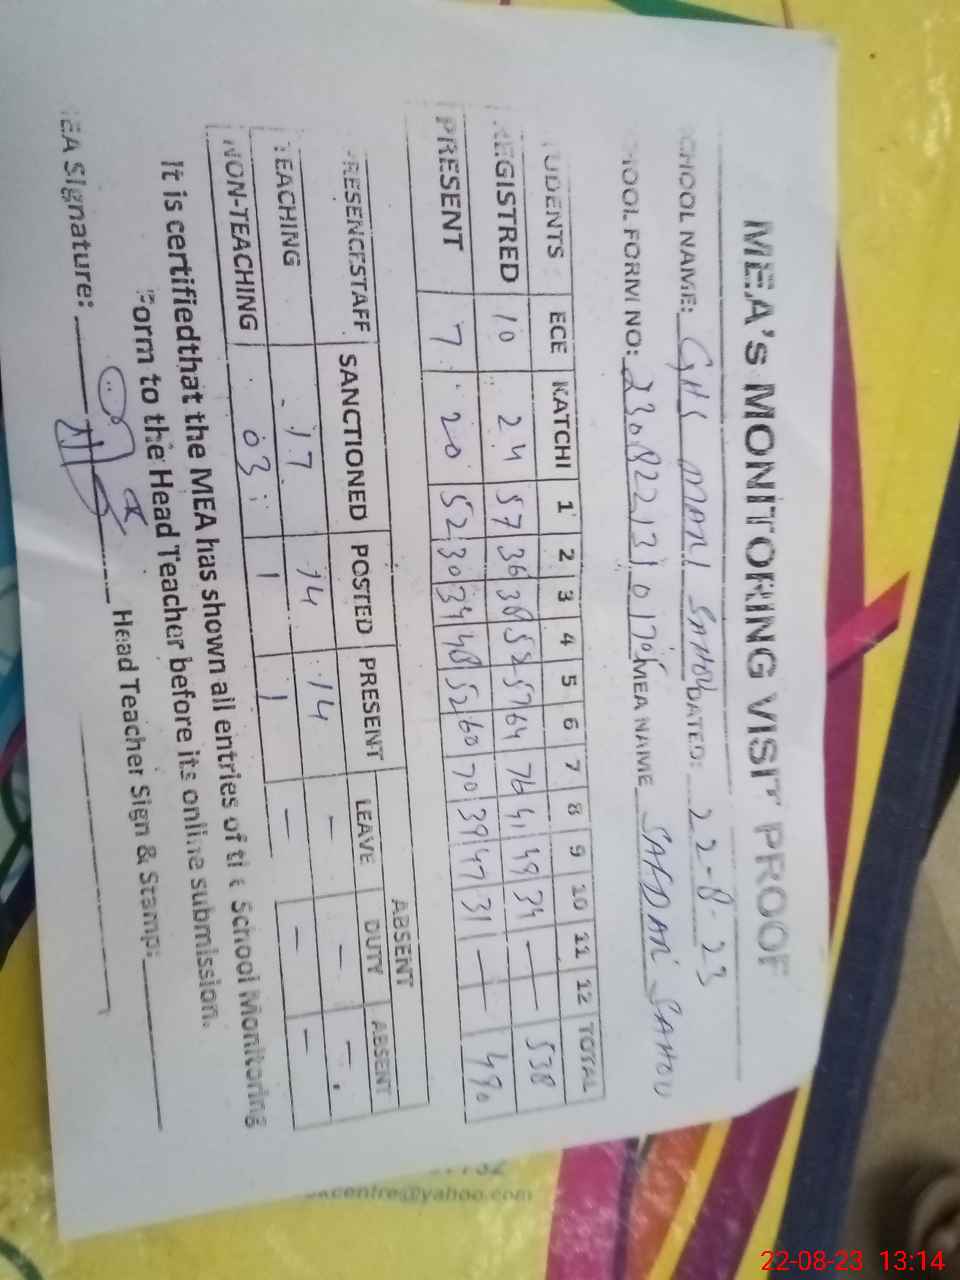 MEA's MONITORING VISIT PROOF
CHOOL NAME: GHS MANI SAHOU DATED: 22-8-23
HOOL FORM NO: MEA NAME SADDAR SAHOU
UDENTS ECE KATCHI 1 2 3 4 5 6 7 8 9 10 11 12 TOTAL
REGISTRED 10 24 57 36 38 52 57 64 76 41 49 34 — — 538
PRESENT 7 20 52 30 34 48 52 60 70 39 47 31 — — 490
ABSENT
RESENCESTAFF SANCTIONED POSTED PRESENT LEAVE DUTY ABSENT
TEACHING 17 14 14 — — —
NON-TEACHING 03 1 1 — — —
It is certifiedthat the MEA has shown all entries of the School Monitoring
Form to the Head Teacher before its online submission.
EA Signature: Head Teacher Sign & Stamp:
kcentre@yahoo.com
22-08-23 13:14